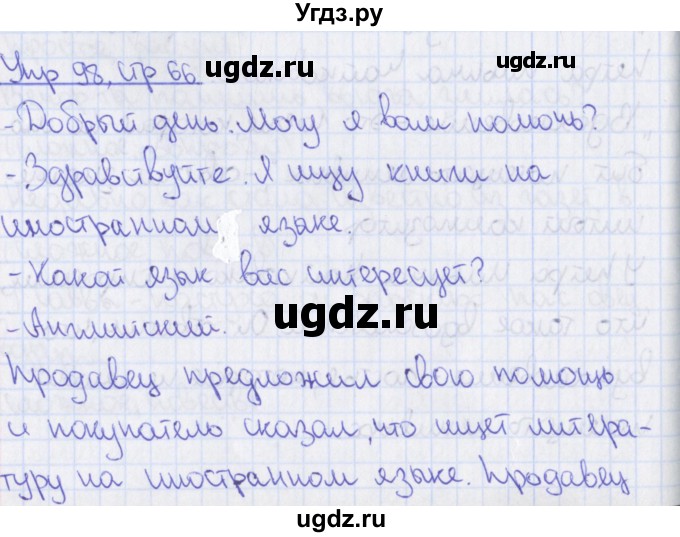 Угдз.ру
Упр 98, стр 66
ugdz.ru
ugdz.ru
- Добрый день. Могу я вам помочь?
- Здравствуйте. Я ищу книги на
иностранном языке.
ugdz.ru
- Какой язык вас интересует?
ugdz.ru
- Английский.
Продавец предложил свою помощь
и покупатель сказал, что ищет литера-
туру на иностранном языке. Продавец
ugdz.ru
ugdz.ru